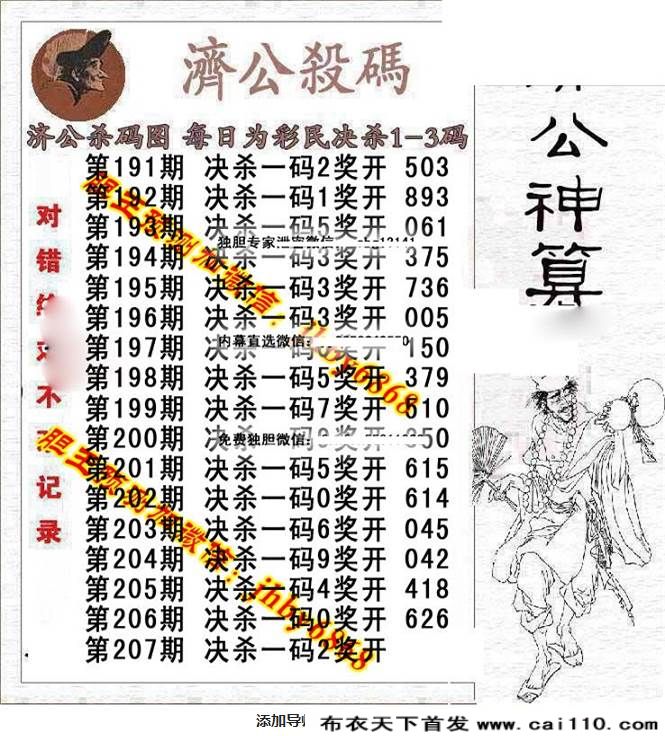 濟公殺碼
济公杀码图 每日为彩民决杀1-3码
第191期 决杀一码2奖开 503
第192期 决杀一码1奖开 893
第193期 决杀一码5奖开 061
第194期 决杀一码3奖开 375
第195期 决杀一码3奖开 736
第196期 决杀一码3奖开 005
第197期 150
第198期 决杀一码5奖开 379
第199期 决杀一码7奖开 510
第200期 决杀一码 奖开
第201期 决杀一码5奖开 615
第202期 决杀一码0奖开 614
第203期 决杀一码6奖开 045
第204期 决杀一码9奖开 042
第205期 决杀一码4奖开 418
第206期 决杀一码0奖开 626
第207期 决杀一码2奖开
独胆专家泄密微信
内幕直选微信:
免费独胆微信:
对错
不
记录
公神算
添加导
布衣天下首发 www.cai110.com